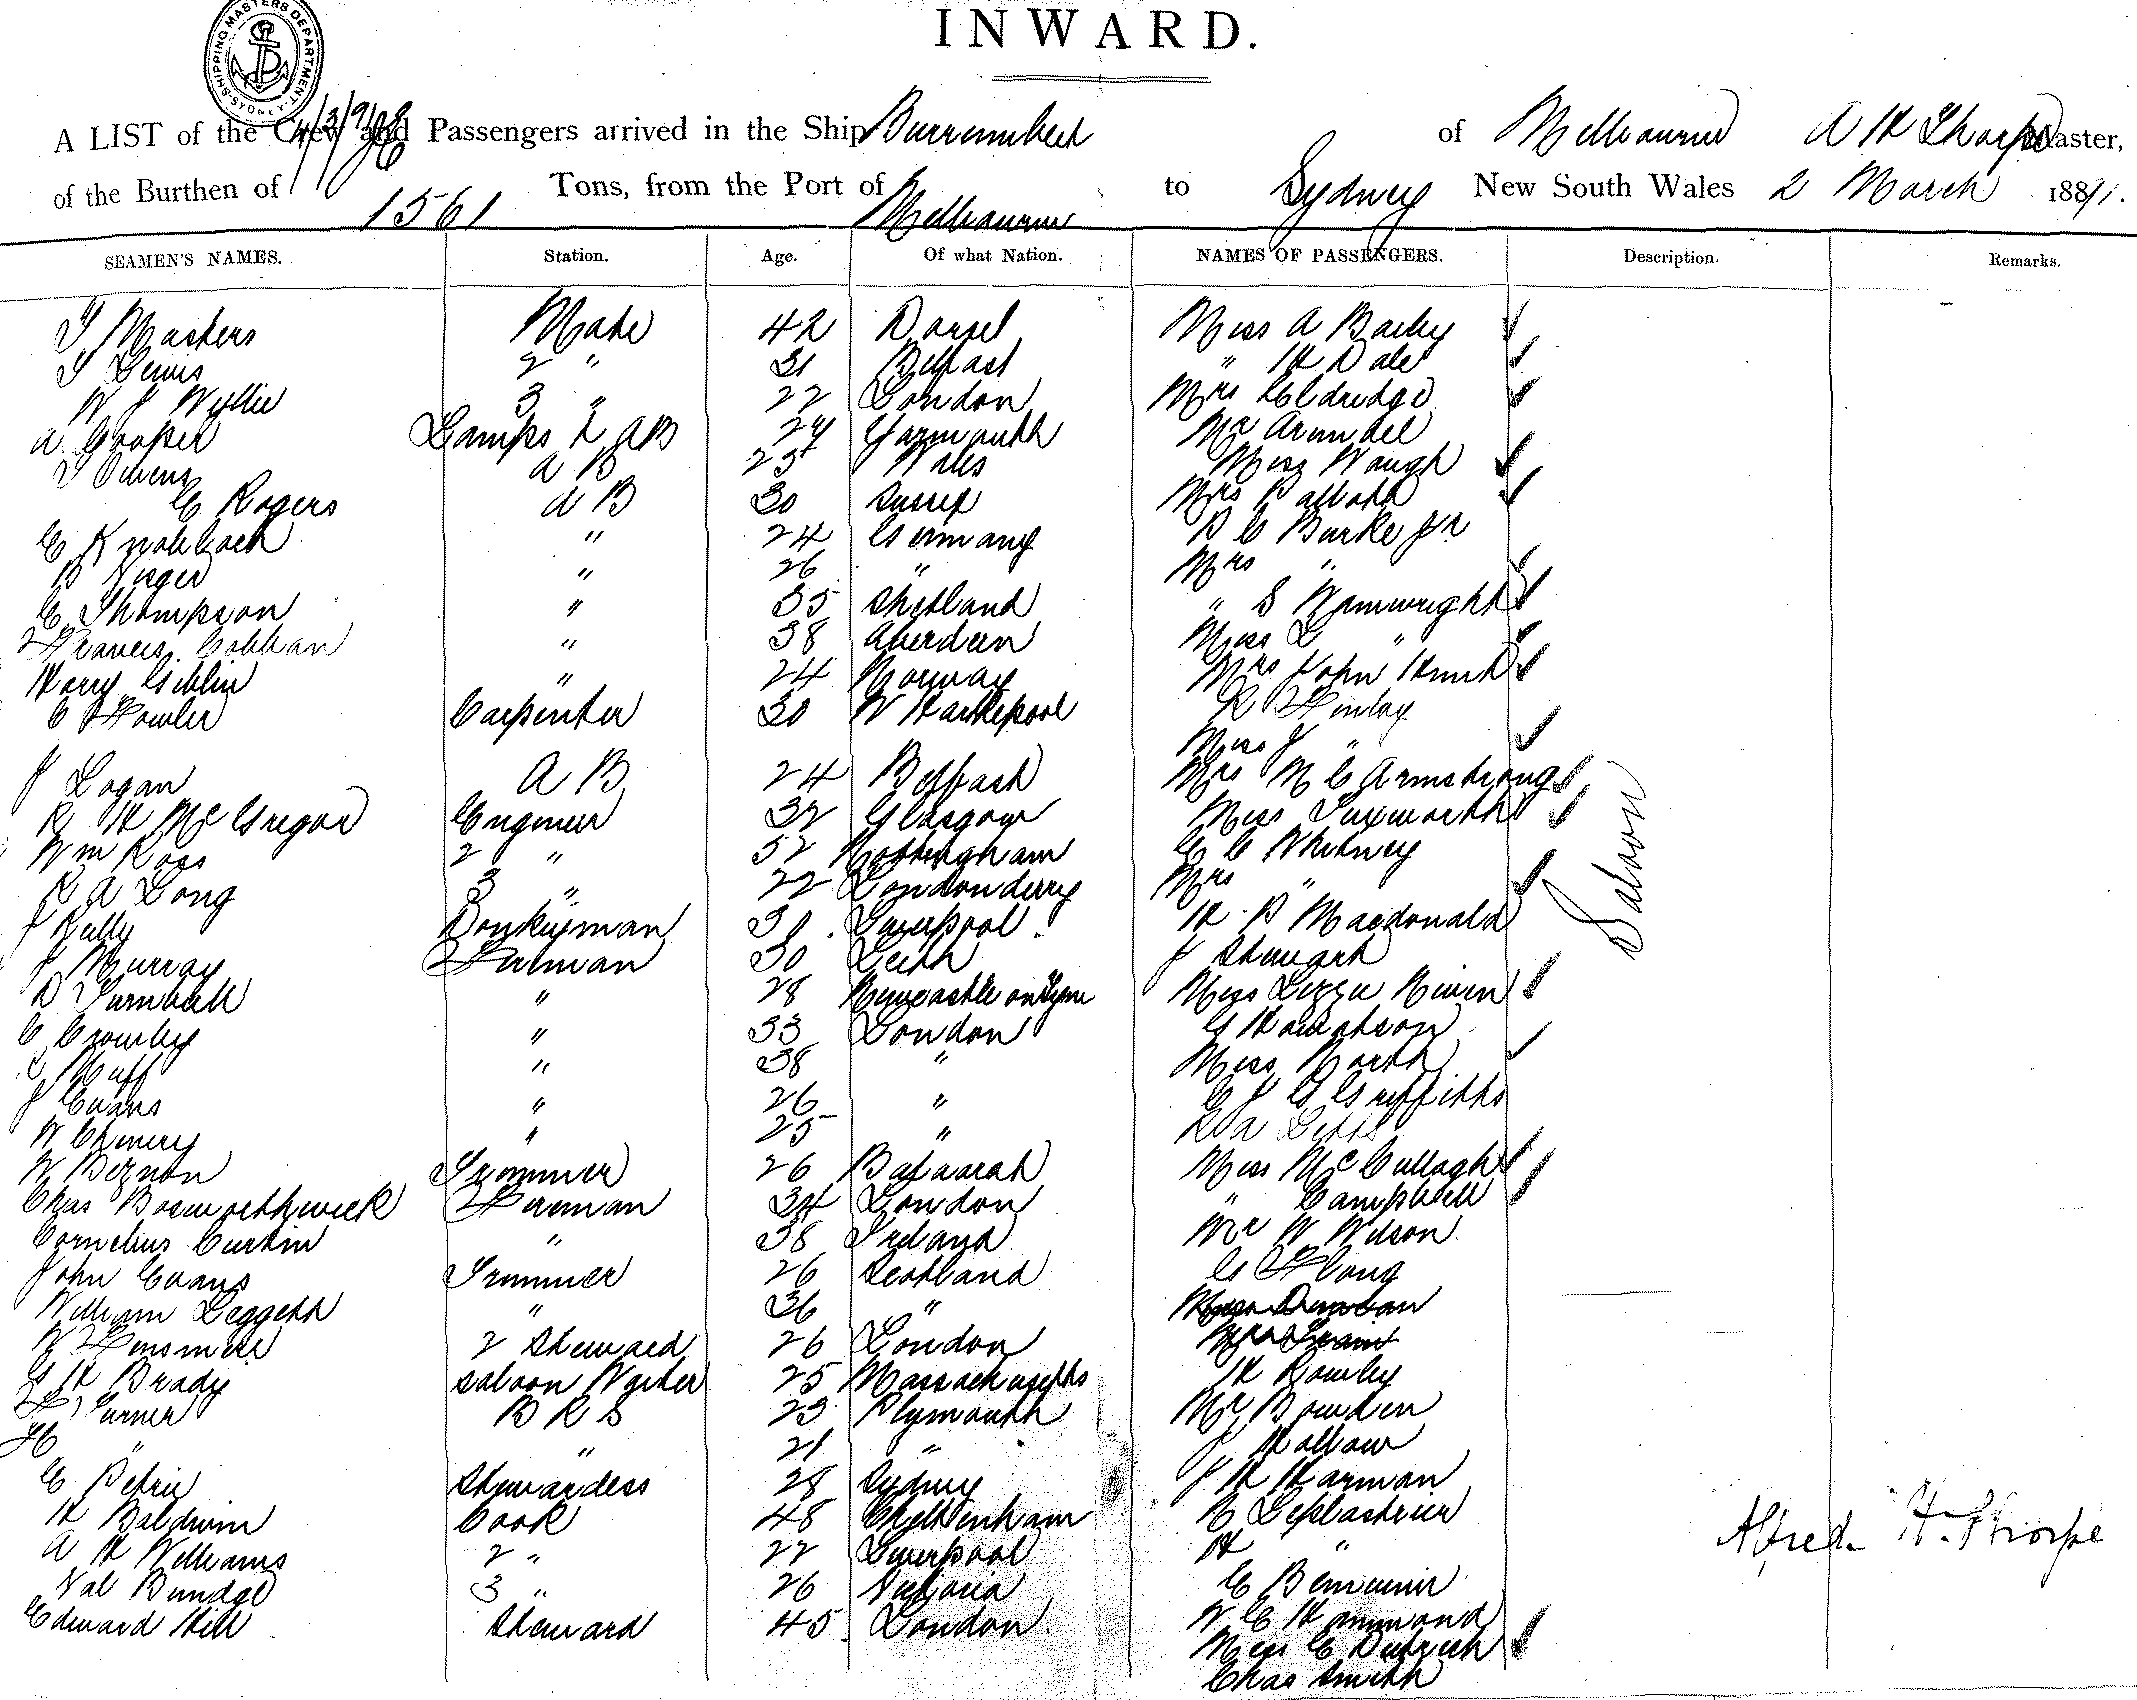 SHIPPING MASTERS DEPARTMENT
SYDNEY
INWARD.
A LIST of the Crew and Passengers arrived in the Ship Burrumbeet of Melbourne A H Thorpe Master,
of the Burthen of 1561 Tons, from the Port of Melbourne to Sydney New South Wales 2 March 1891.
SEAMEN'S NAMES. Station. Age. Of what Nation. NAMES OF PASSENGERS. Description. Remarks.
T Masters Mate 42 Dorset Miss A Bailey
T Lewis 2 " 31 Belfast " H Dale
W J Wyllie 3 " 22 London Mrs Eldredge
A Cooper Lamps & AB 24 Yarmouth Mr Arundel
T Owens A B 25 Wales Miss Waugh
C Rogers A B 30 Sussex Mrs
C " 24 Germany D C Burke Jr
" 26 " Mrs "
C Thompson " 35 Shetland " S Wainwright
Francis " 38 Aberdeen Miss L "
Harry Giblin " 24 Norway Mrs John Hunt
C Fowler Carpenter 30 W Hartlepool R Finlay
Miss J "
J Logan A B 24 Belfast Mrs M C Armstrong
R H McGregor Engineer 32 Glasgow Miss Tuxworth
Wm Ross 2 " 52 Nottingham C C Whitney
R A Long 3 " 22 Londonderry Mrs "
J Kelly Donkeyman 30 Liverpool H D Macdonald
J Murray Fireman 30 Leith J Stewart
D Turnbull " 28 Newcastle on Tyne Miss Lizzie Niven
C Crowley " 33 London G
Muff " 38 " Miss North
J Evans " 26 " C J G Griffiths
W Chinery " 25 "
W Trimmer 26 Miss McCullagh
Chas Bosworthwick Fireman 34 London " Campbell
Cornelius Curtin " 38 Ireland Mr W Wilson
John Evans Trimmer 26 Scotland G F Long
William Leggett " 36 " Miss Dunban
W Hensmere 2 Steward 26 London Mrs Grant
G H Brady Saloon Waiter 25 Massachusetts H Rowley
F Turner B R S 23 Plymouth Mr Bowden
H " " 21 " J
C Petrie Stewardess 28 Sydney J H Harman
H Baldwin Cook 48 Cheltenham N Leplastrier
A H Williams 2 " 22 Liverpool H "
Val Bundge 3 " 26 Victoria C
Edward Hill Steward 45 London W C Hammond
Miss C
Chas Smith
Saloon
Alfred H. Thorpe